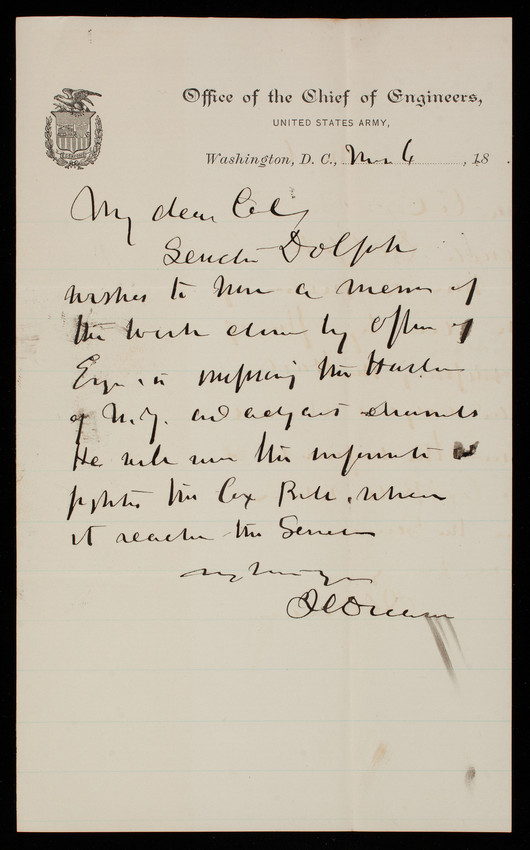 Office of the Chief of Engineers,
UNITED STATES ARMY,
Washington, D. C., 6, 18
My dear Col,
Senator Dolph
wishes to have a memo of
the work done by Office of
Eng. in the Harbor
of N.Y. and adjacent channels
He will use the information
fighting the Cox Bill, when
it reaches the Senate